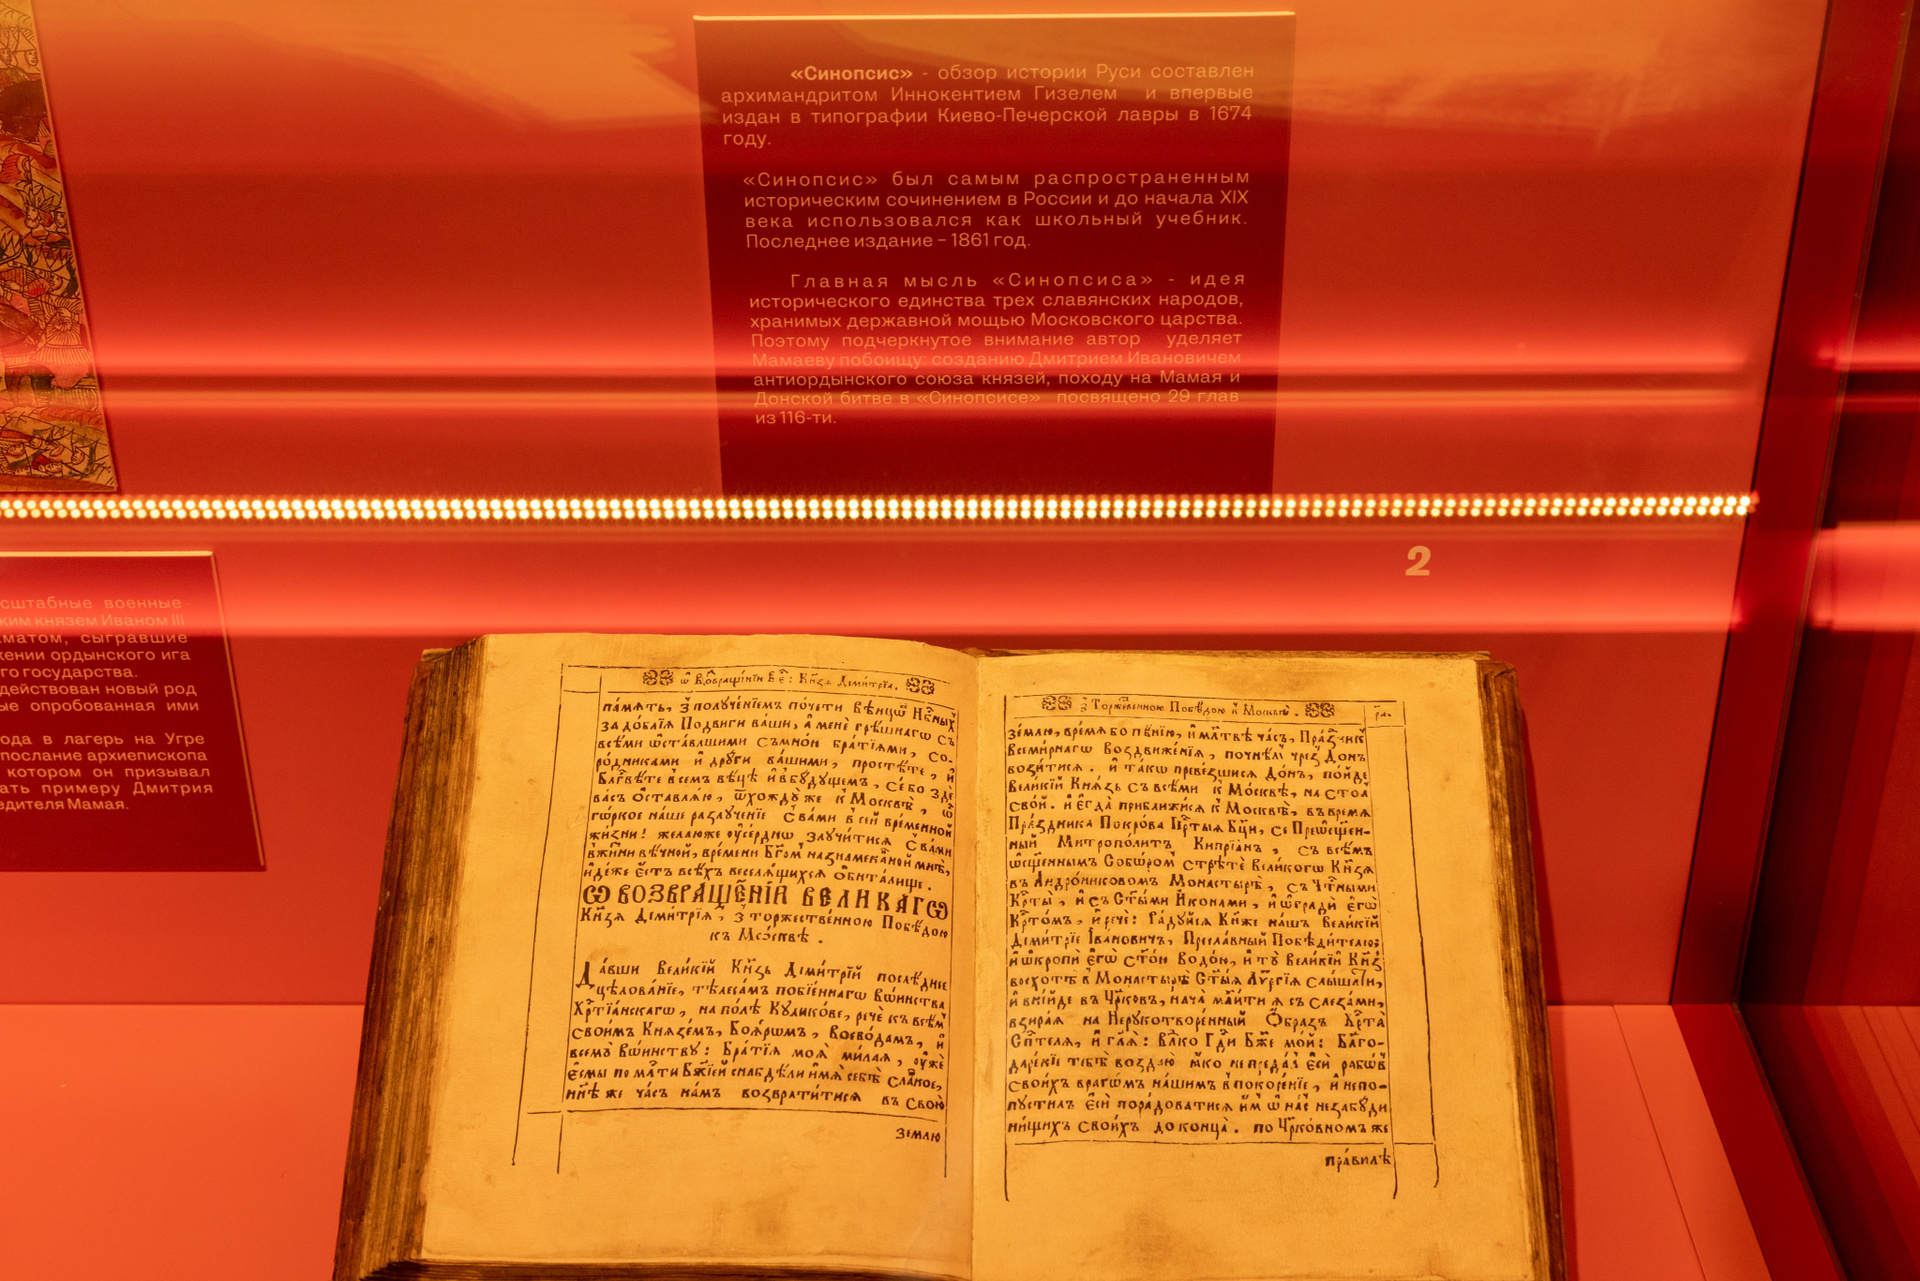 «Синопсис» - обзор истории Руси составлен
архимандритом Иннокентием Гизелем и впервые
издан в типографии Киево-Печерской лавры в 1674
году.
«Синопсис» был самым распространенным
историческим сочинением в России и до начала XIX
века использовался как школьный учебник.
Последнее издание – 1861 год.
Главная мысль «Синопсиса» - идея
исторического единства трех славянских народов,
хранимых державной мощью Московского царства.
Поэтому подчеркнутое внимание автор уделяет
Мамаеву побоищу: созданию Дмитрием Ивановичем
антиордынского союза князей, походу на Мамая и
Донской битве в «Синопсисе» посвящено 29 глав
из 116-ти.
2
сштабные военные
ким князем Иваном III
матом, сыгравшие
жении ордынского ига
го государства.
действован новый род
ые опробованная ими
ода в лагерь на Угре
послание архиепископа
котором он призывал
ать примеру Дмитрия
едителя Мамая.
память, з̾ полꙋче́нїемъ по́чети Вѣнцѡ̑въ
за до́блїѧ Подвиги ва́ши, а̀ менѐ грѣ́шнагѡ съ
всѣ́ми ѡ҆ста́вшими съ мно́ю бра́тїѧми, со-
ро́дниками и҆ дрꙋ́ги ва́шими, прости́те, и҆
ва́съ Ѡ҆ставлѧ́ю, ѿхождꙋ́ же къ Москвѣ̀,
го́ркое на́ше разлꙋче́нїе с̾ ва́ми в̾ сей вре́менной
жи́зни! жела́ю же ᲂу҆се́рднѡ злꙋчи́тисѧ с̾ ва́ми
и҆дѣ́же є҆сть всѣ́хъ веселѧ́щихсѧ Ѡ҆бита́лище.
Ѡ ВОЗВРАЩЕ́НІИ ВЕЛИКАГѠ
Кнѧ҃зѧ Дими́трїѧ, з̾ торже́ственною Побѣ́дою
къ Мо́сквѣ.
Да́вши Вели́кїй Кнѧ҃зь Дими́трїй послѣ́днее
цѣлова́нїе, тѣлеса́мъ побїе́ннагѡ Во́инства
Хрⷭ҇тїа́нскагѡ, на по́лѣ Кꙋли́кове, речѐ къ всѣ̑мъ
свои̑мъ Кнѧзе́мъ, Боѧ́рѡмъ, Воево́дамъ, и҆
всемꙋ̀ Во́инствꙋ: Бра́тїѧ моѧ̀ ми́лаѧ, ᲂу҆жѐ
нн҃ѣ же ча́съ на́мъ возврати́тисѧ въ свою̀
зе́млю
з̾ Торже́ственною Побѣ́дою к̾ Москвѣ̀.
зе́млю, вре́мѧ бо
Всемі́рнагѡ Воздвиже́нїѧ, поча́ша чрез̾ До́нъ
вози́тисѧ. и҆ та́кѡ превезшисѧ До́нъ, по́йде
Вели́кїй Кнѧ́зь съ всѣ́ми к̾ Москвѣ̀, на сто́лъ
сво́й. и҆ є҆гда̀ прибли́жисѧ к̾ Москвѣ̀, въ вре́мѧ
Пра́здника Покро́ва Прⷭ҇тыѧ Бц҃ы, се Преѡсщ҃е́н-
ный Митрополи́тъ Кипрїа́нъ, съ всѣ́мъ
ѡ҆сщ҃е́ннымъ Собо́ромъ стрѣ́те Вели́кагѡ Кнѧ҃зѧ
въ А҆ндро́никовомъ Монастырѣ̀, съ Чтⷭ҇ными
Крⷭ҇ты̀, и҆ съ Ст҃ы́ми И҆ко́нами, и҆ ѡ҆градѝ є҆го̀
Крⷭ҇то́мъ, и҆ речѐ: Ра́дꙋйсѧ Кнѧ҃же на́шъ Вели́кїй
Дими́трїе І҆ва́новичъ, Пресла́вный Побѣди́телю:
и҆ ѡ҆кропѝ є҆го̀ ст҃о́ю Водо́ю, и҆ тꙋ̀ Вели́кїй Кнѧ҃зь
восхотѣ̀ в̾ Монастырѣ̀ Ст҃ы́ѧ Лїтꙋргі́ѧ слы́шати,
и҆ вни́йде въ Цр҃ковь, нача̀ моли́тисѧ съ слеза́ми,
взира́ѧ на Нерꙋкотворе́нный Ѻ҆́бразъ Хрⷭ҇та̀
Сп҃си́телѧ, и҆ гл҃ѧ: Влⷣко Гдⷭ҇и Бж҃е мо́й: Бл҃го-
даре́нїе тебѣ̀ воздаю̀ ꙗ҆́ко не преда́лъ є҆сѝ рабѡ́въ
свои́хъ врагѡ́мъ на́шимъ в̾ покоре́нїе, и҆ непо-
пꙋсти́лъ є҆сѝ пора́доватисѧ и҆̀мъ ѡ҆ на́съ не забꙋ́ди
ни́щихъ свои́хъ до конца̀. по Цр҃ко́вномꙋ же
пра́вилꙋ